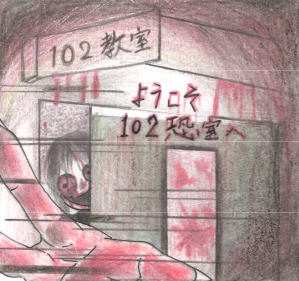 102教室
ようこそ
102恐室へ